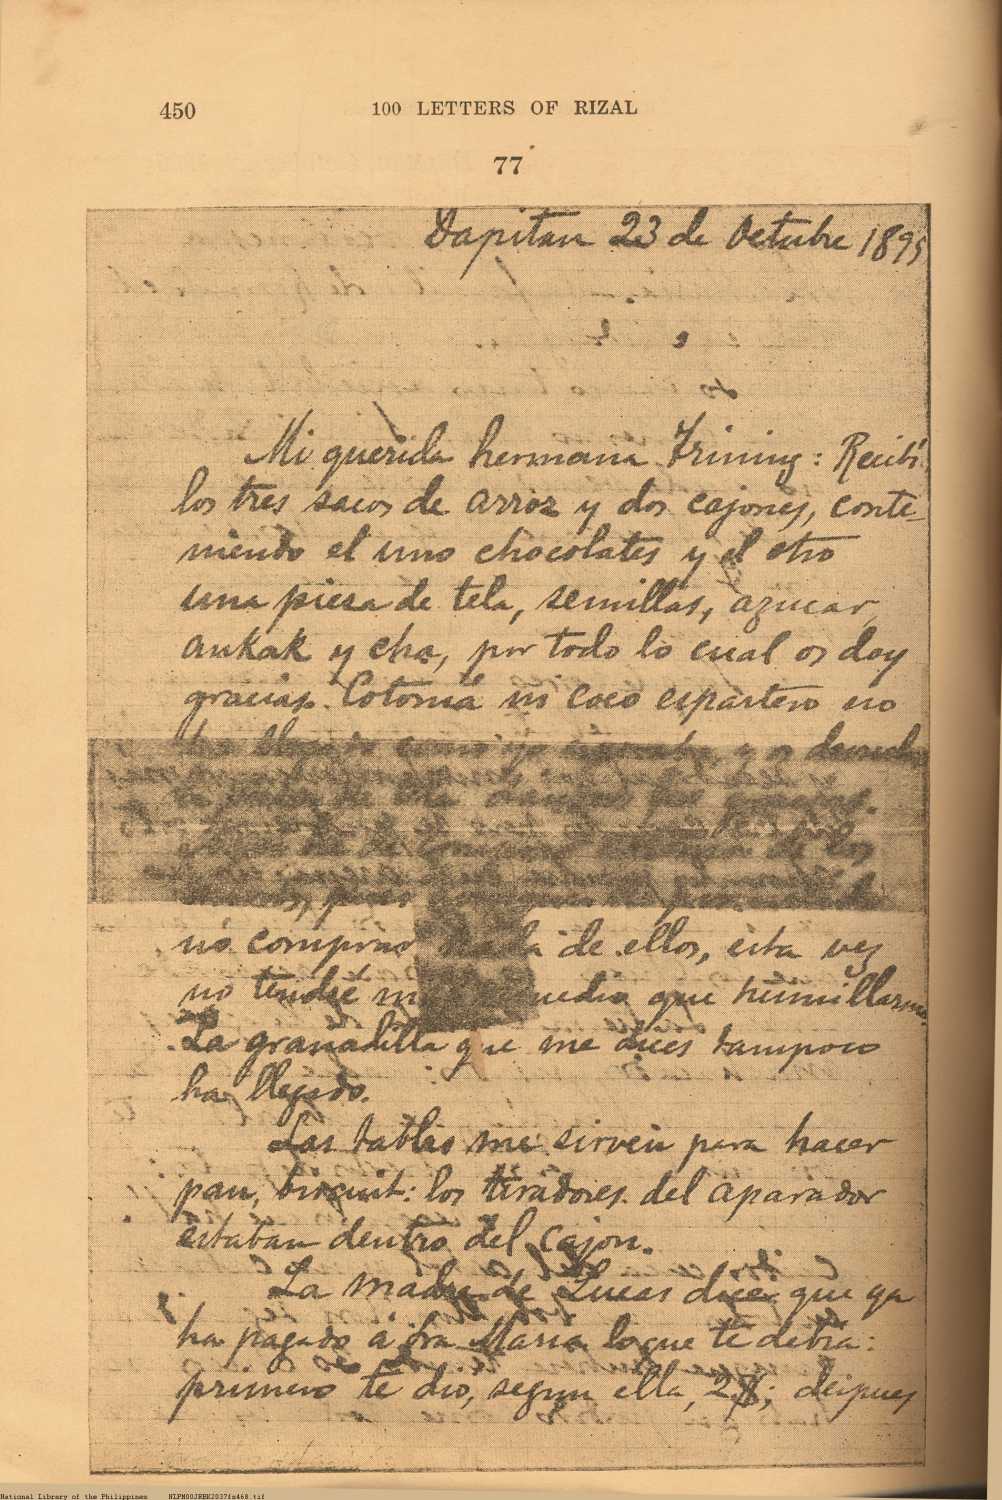 450
100 LETTERS OF RIZAL
77
Dapitan 23 de Octubre 1895
Mi querida hermana Trining: Recibí
los tres sacos de arroz y dos cajones, conte-
niendo el uno chocolates y el otro
una piesa de tela, semillas, azucar,
aukak y cha, por todo lo cual os doy
gracias. Cotomá ni coco espartero no
no comprar de ellos, esta vez
no tendré que humillarme.
La granadilla que me dices tampoco
ha llegado.
Las tablas me sirven para hacer
pan, biscuit: los tiradores del aparador
estaban dentro del cajon.
La madre de Lucas dice que ya
ha pagado á Dra Maria lo que te debia:
primero te dio, segun ella, ; despues
National Library of the Philippines NLPM00JRBK2037fs468.tif